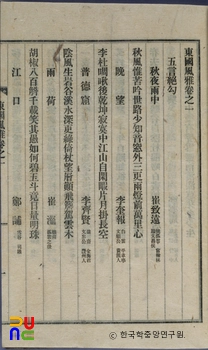 東國風雅卷之一
五言絕句
秋夜雨中 崔致遠
秋風惟苦吟世路少知音窓外三更雨燈前萬里心
晚望 李奎報
李杜啁啾後乾坤寂寞中江山自閑暇片月掛長空
普德窟 李齊賢
陰風生岩谷溪水深更綠倚杖望層巓飛簷駕雲木
雨荷 崔瀣
胡椒八百斛千載笑其愚如何碧玉斗竟日量明珠
江口 鄭誧
東國風雅卷之一
한국학중앙연구원